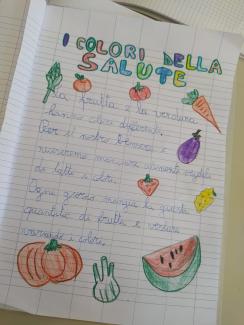 I COLORI DELLA
SALUTE
La frutta e la verdura
hanno colori differenti.
Per il nostro benessere è
necessario mangiare alimenti vegetali
di tutti i colori.
Ogni giorno mangia la giusta
quantità di frutta e verdura
variando i colori.